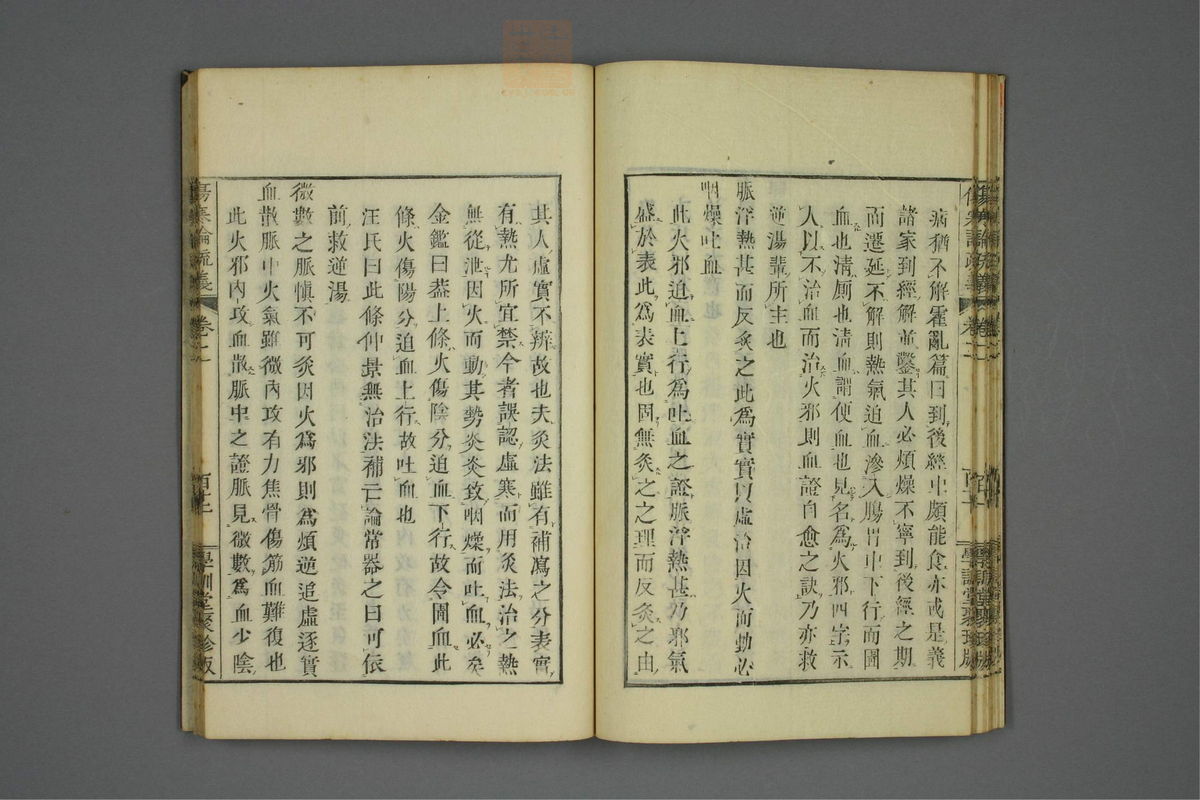 病猶不解霍亂篇曰到後經中頗能食亦或是義
諸家到經解並鑿其人必煩燥不寧到後經之期
而遷延不解則熱氣迫血滲入腸胃中下行而圊
血也清厠也清血謂便血也見名爲火邪四字示
人以不治血而治火邪則血證自愈之訣乃亦救
逆湯輩所主也
脈浮熱甚而反灸之此爲實實以虛治因火而動必
咽燥吐血
此火邪迫血上行爲吐血之證脈浮熱甚乃邪氣
盛於表此爲表實也固無灸之之理而反灸之由
其人虛實不辨故也夫灸法雖有補瀉之分表實
有熱尤所宜禁今者誤認虛寒而用灸法治之熱
無從泄因火而動其勢炎炎致咽燥而吐血必矣
金鑑曰葢上條火傷陰分迫血下行故令圊血此
條火傷陽分迫血上行故吐血也
汪氏曰此條仲景無治法補亡論常器之曰可依
前救逆湯
微數之脈愼不可灸因火爲邪則爲煩逆追虛逐實
血散脈中火氣雖微內攻有力焦骨傷筋血難復也
此火邪內攻血散脈中之證脈見微數爲血少陰
傷寒論疏義
卷二
學訓堂聚珍版